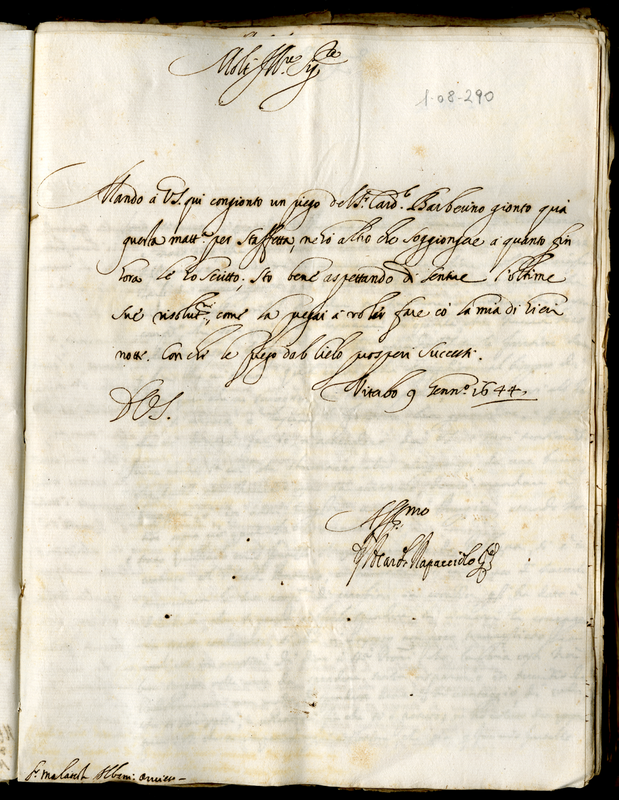 Molt' Ill.re Sig.re
1-08-290
Mando à VS. qui congionto un piego del S.r Card. Barberino gionto quà
questa matt.a per staffetta, ne hò altro che soggiongere à quanto fin
hora le hò scritto; sto bene aspettando di sentire l'ultime
sue risolut.ni, come la pregai à voler fare cō la mia di hieri
notte. Con che le prego dal Cielo prosperi successi.
Viterbo 9 Genn.o 1644.
D VS.
Aff.mo
Il Card. Rapacciolo